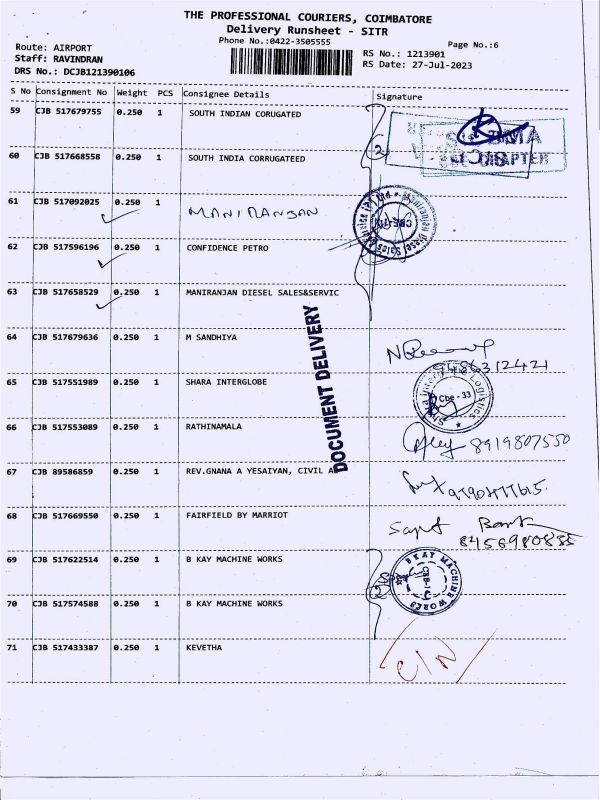 THE PROFESSIONAL COURIERS, COIMBATORE
Delivery Runsheet - SITR
Phone No.:0422-3505555
Page No.:6
Route: AIRPORT
Staff: RAVINDRAN
DRS No.: DCJB121390106
RS No.: 1213901
RS Date: 27-Jul-2023
S No Consignment No Weight PCS Consignee Details Signature
59 CJB 517679755 0.250 1 SOUTH INDIAN CORUGATED
60 CJB 517668558 0.250 1 SOUTH INDIA CORRUGATEED
2
61 CJB 517092025 0.250 1 MANIRANJAN
62 CJB 517596196 0.250 1 CONFIDENCE PETRO
63 CJB 517658529 0.250 1 MANIRANJAN DIESEL SALES&SERVIC
DOCUMENT DELIVERY
64 CJB 517679636 0.250 1 M SANDHIYA
65 CJB 517551989 0.250 1 SHARA INTERGLOBE
Cbe - 33
66 CJB 517553089 0.250 1 RATHINAMALA 8919807550
67 CJB 89586859 0.250 1 REV.GNANA A YESAIYAN, CIVIL A
68 CJB 517669550 0.250 1 FAIRFIELD BY MARRIOT
8456980835
69 CJB 517622514 0.250 1 B KAY MACHINE WORKS
70 CJB 517574588 0.250 1 B KAY MACHINE WORKS
B KAY MACHINE WORKS
71 CJB 517433387 0.250 1 KEVETHA C/N